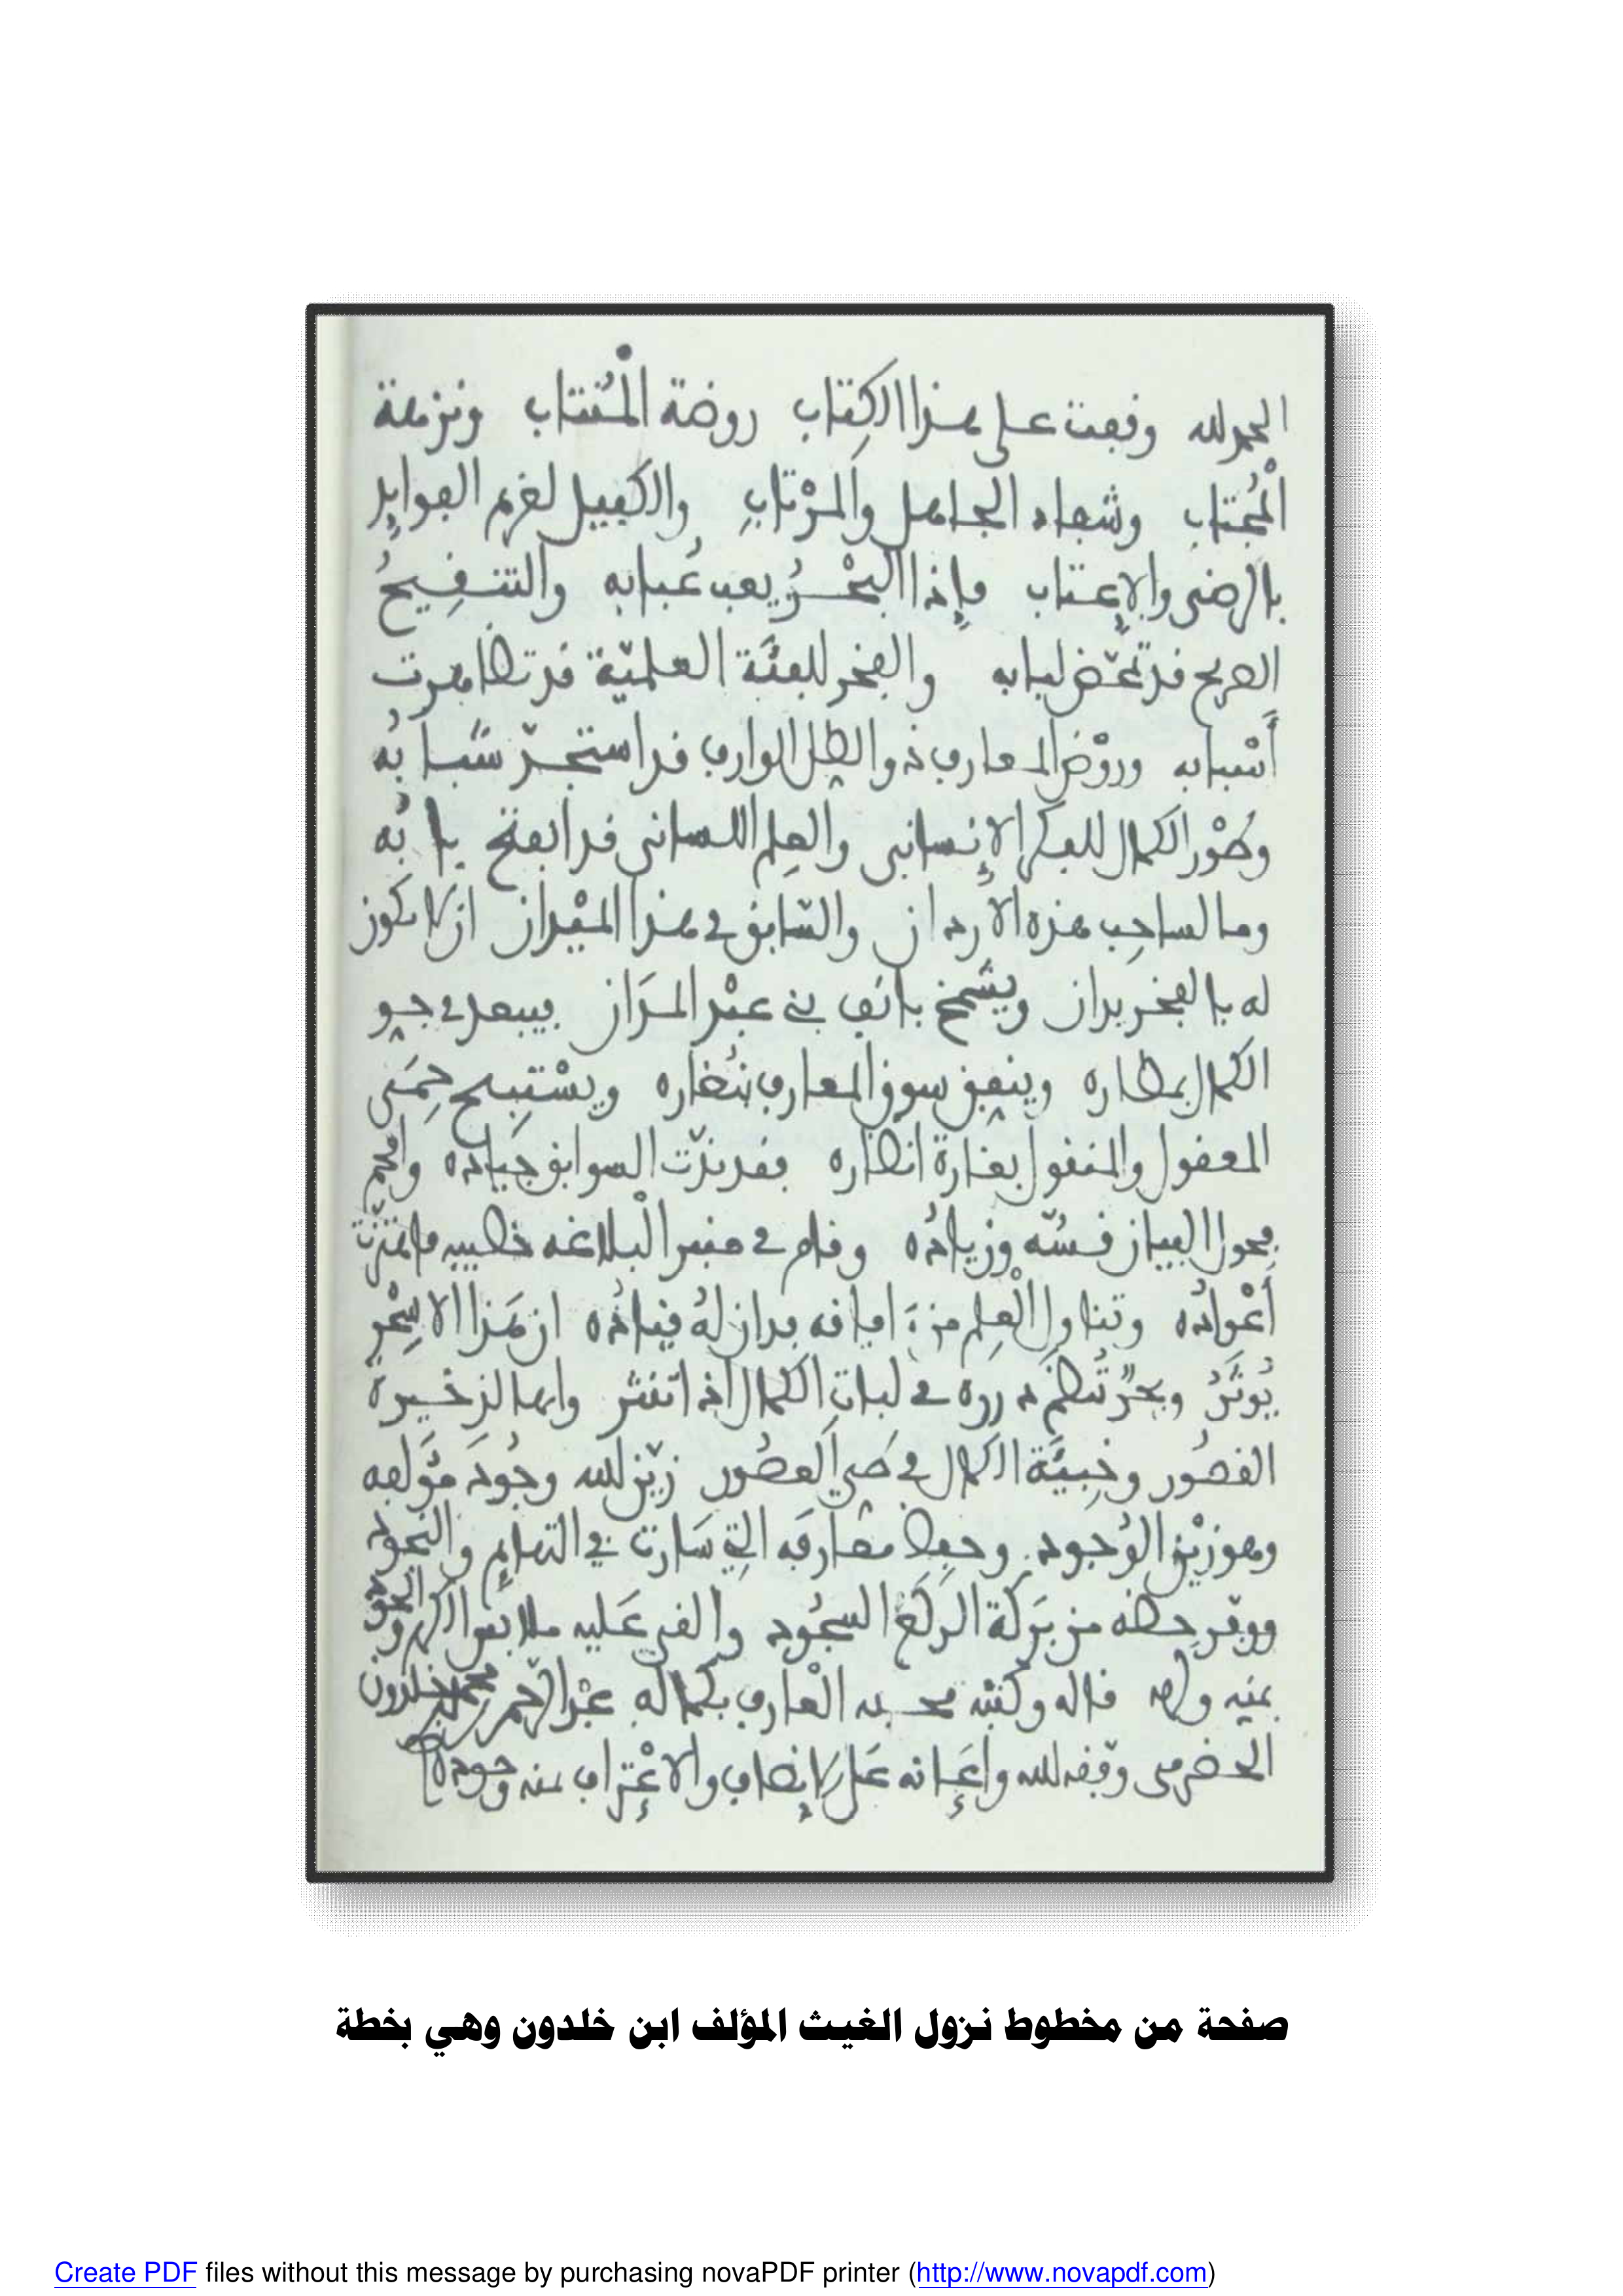 الحمد لله وقفت على هذا الكتاب روضة المنتاب ونزهة
المجتاب وشفاء الجاهل والمرتاب والكفيل لغريم الفوايد
بالرضى والإعتاب فإذا البحر يعب عبابه والتنقيح
الصريح قد تمحض لبابه والفخر للفئة العلمية قد تظاهرت
أسبابه وروض المعارف ذو الظل الوارف قد استجد شبابه
وطور الكمال للفكر الإنساني والعلم اللساني قد انفتح بابه
وما لساحب هذه الأردان والسابق في هذا الميدان ان لا تكون
له بالفخر يدان ويشمخ بانف بني عبد المدان فيبعد في جو
الكمال مطاره وينفق سوق المعارف نضاره ويستبيح حمى
المعقول والمنقول بغارة انظاره فقد ندت السوابق جياده
فحول البيان قسه وزياده وقام في منبر البلاغه خطيبه فاهتزت
أعواده وتناول العلم من افاقه فدان له قياده ان هذا الا سحر
يوثر وبحر تنظم درره في لبات الكمال اذ تنثر وانها لذخيرة
القصور وخبيئة الكمال في طي العصور زين الله وجود مؤلفه
وهو زين الوجود وجعل معارفه التي سارت في التهايم والنجود
ووفر حظه من بركة الركع السجود والقى عليه ملابس الكرم والجود
بمنه قاله وكتبه محبه العارف بكماله عبد الرحمن بن محمد بن خلدون
الحضرمي وفقه الله وأعانه على الإنصاف والاعتراف بمنه وجوده
صفحة من مخطوط نزول الغيث المؤلف ابن خلدون وهي بخطة
Create PDF files without this message by purchasing novaPDF printer (http://www.novapdf.com)